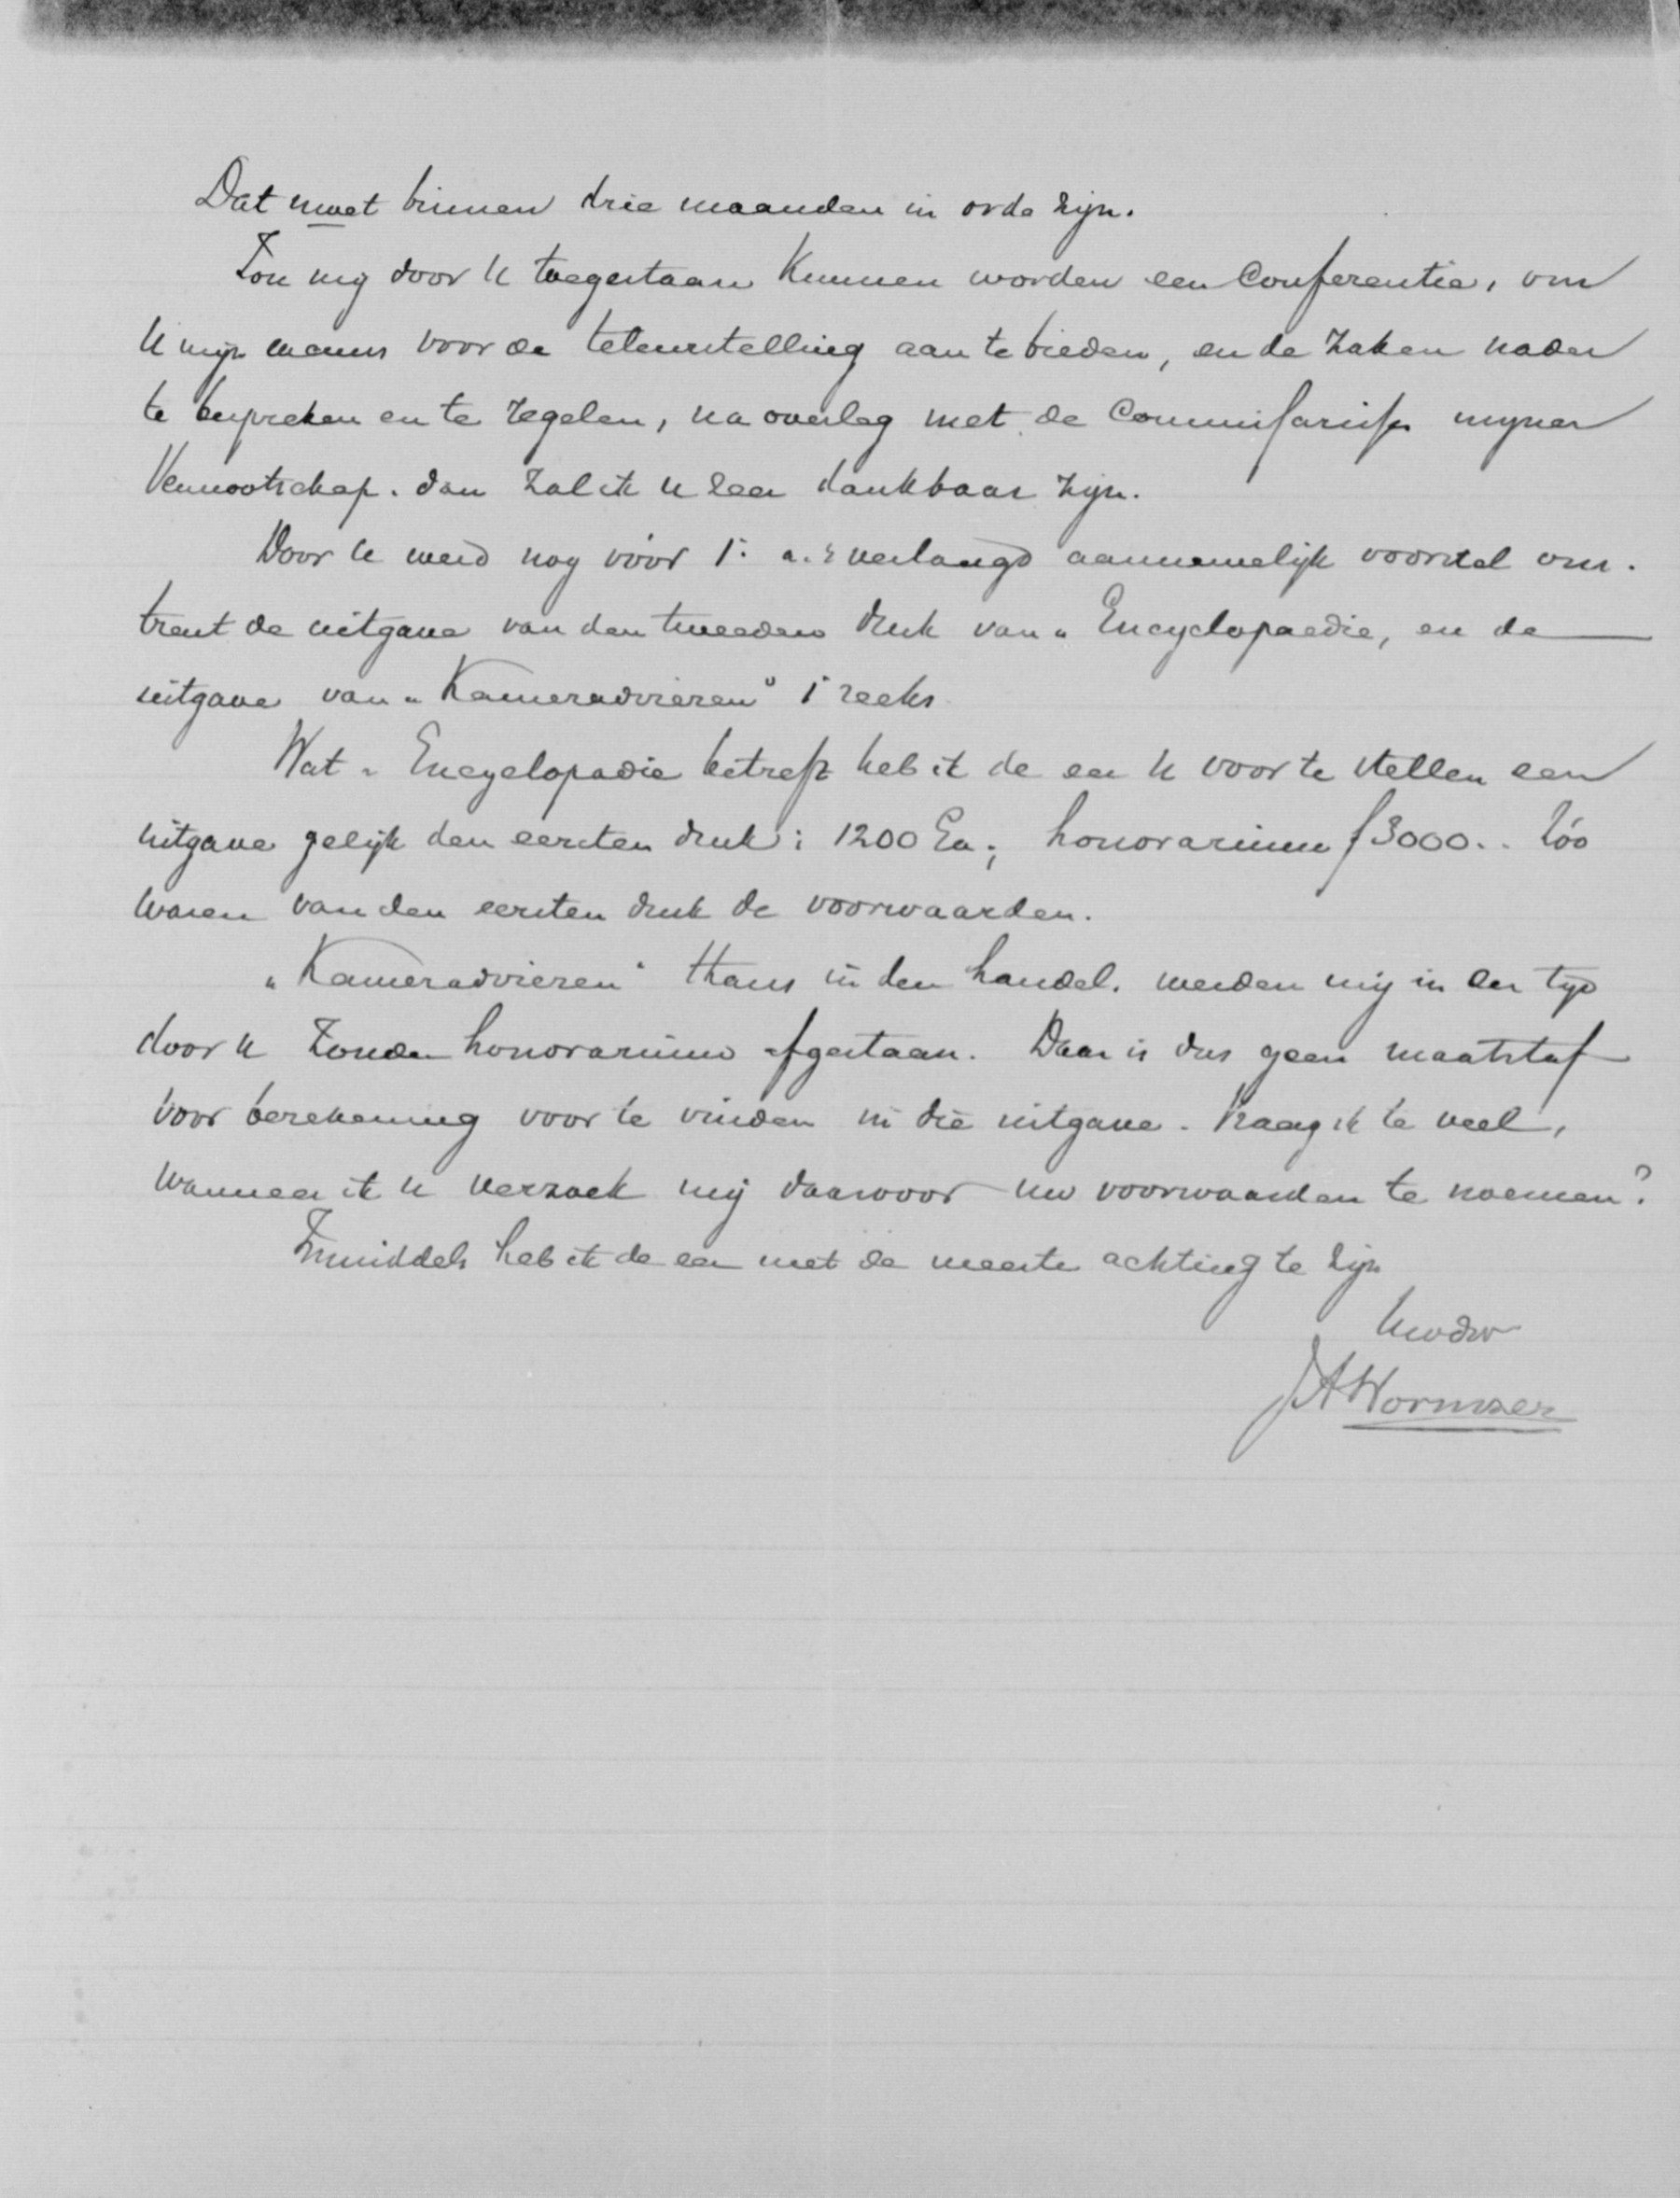 Dat moet binnen drie maanden in orde zijn.
Zou mij door U toegestaan kunnen worden een Conferentie, om
U mijn excuus voor de teleurstelling aan te bieden, en de zaken nader
te bespreken en te regelen, na overleg met de Commissarissen mijner
Vennootschap. dan zal ik u zeer dankbaar zijn.
Door U werd nog vóór 1: a. s verlangd aannemelijk voorstel om-
trent de uitgave van den tweeden druk van „Encyclopaedie, en de
uitgave van „Kameradviezen" 1e reeks
Wat „Encyclopadie betreft heb ik de eer U voor te stellen een
uitgave gelijk den eersten druk: 1200 Ex; honorarium f3000.. Zóó
waren van den eersten druk de voorwaarden.
„Kameradviezen" thans in den handel. werden mij in der tijd
door U zonder honorarium afgestaan. Daar is dus geen maatstaf
voor berekening voor te vinden in die uitgave. Vraag ik te veel,
wanneer ik U verzoek mij daarvoor uw voorwaarden te noemen?
Inmiddels heb ik de eer met de meeste achting te zijn
Uwdw
JAWormser